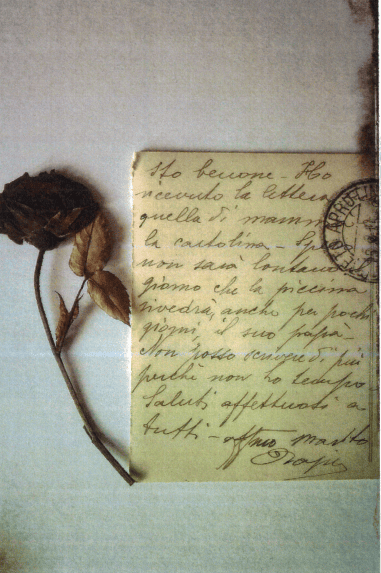 Sto benone - Ho
ricevuto la lettera
quella di mamm
la cartolina - Sp
non sarà lontano
giorno che la piccina
rivedrà, anche per pochi
giorni, il suo papà -
Non posso scrivere di più
perchè non ho tempo
Saluti affettuosi a
tutti - aff/mo marito